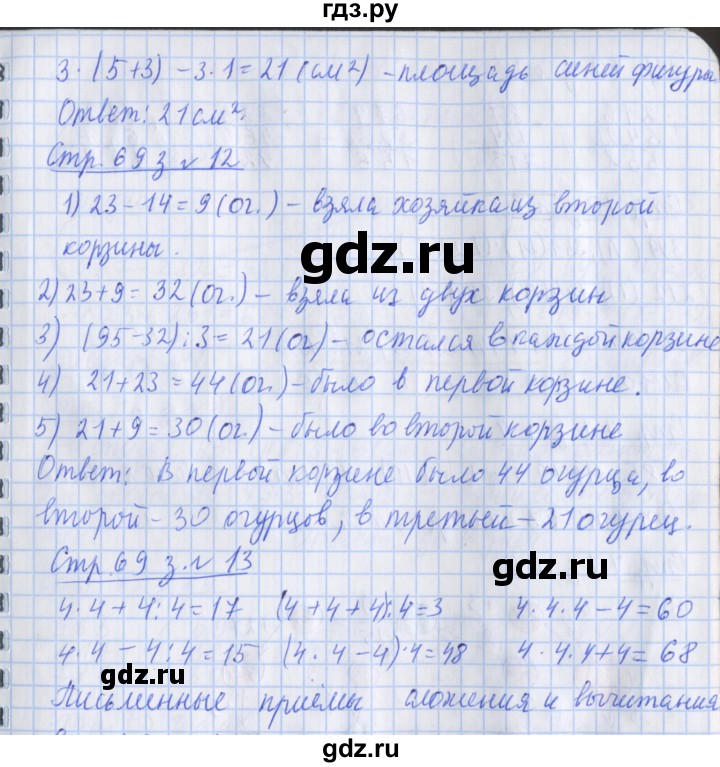 гдз.ру
3·(5+3)-3·1=21(см²)-площадь синей фигуры
Ответ: 21 см².
Стр. 69 з. № 12
1) 23-14=9(ог.)-взяла хозяйка из второй
корзины.
gdz.ru
2) 23+9=32(ог.)-взяла из двух корзин
3) (95-32):3=21(ог)-остался в каждой корзине
4) 21+23=44(ог.)-было в первой корзине.
5) 21+9=30(ог.)-было во второй корзине
Ответ: в первой корзине было 44 огурца, во
второй-30 огурцов, в третьей-21 огурец.
Стр. 69 з. № 13
gdz.ru
4·4+4:4=17 (4+4+4):4=3 4·4·4-4=60
4·4-4:4=15 (4·4-4)·4=48 4·4·4+4=68
gdz.ru
Письменные приёмы сложения и вычитания
gdz.ru